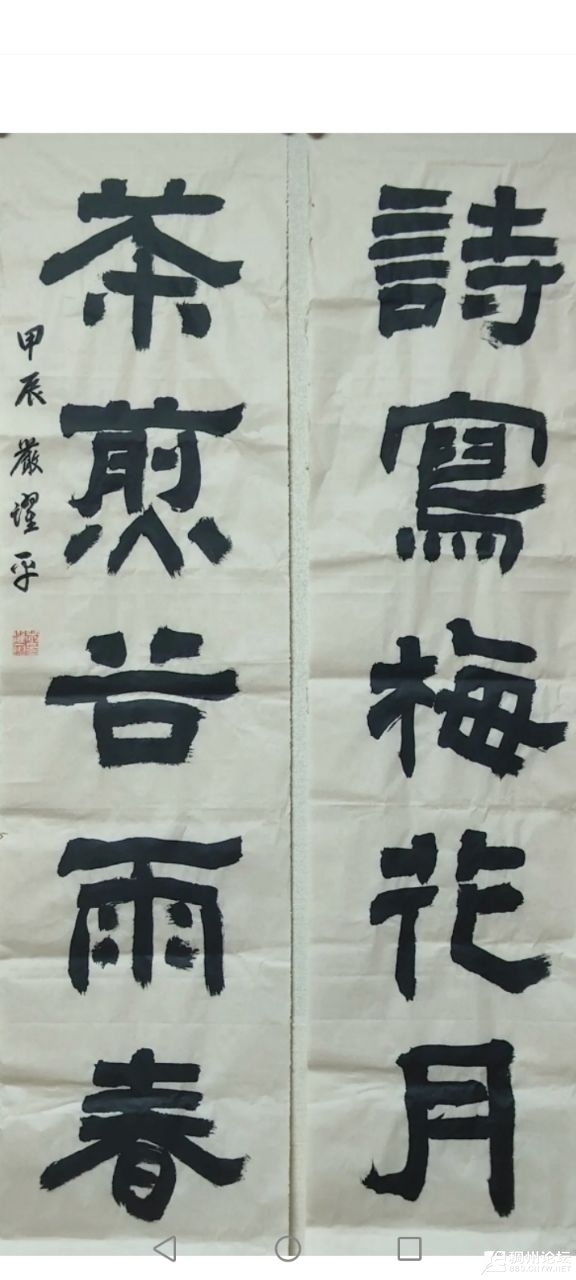 詩寫梅花月
茶煎谷雨春
甲辰 嚴耀平
稠州论坛
BBS.CNYW.NET